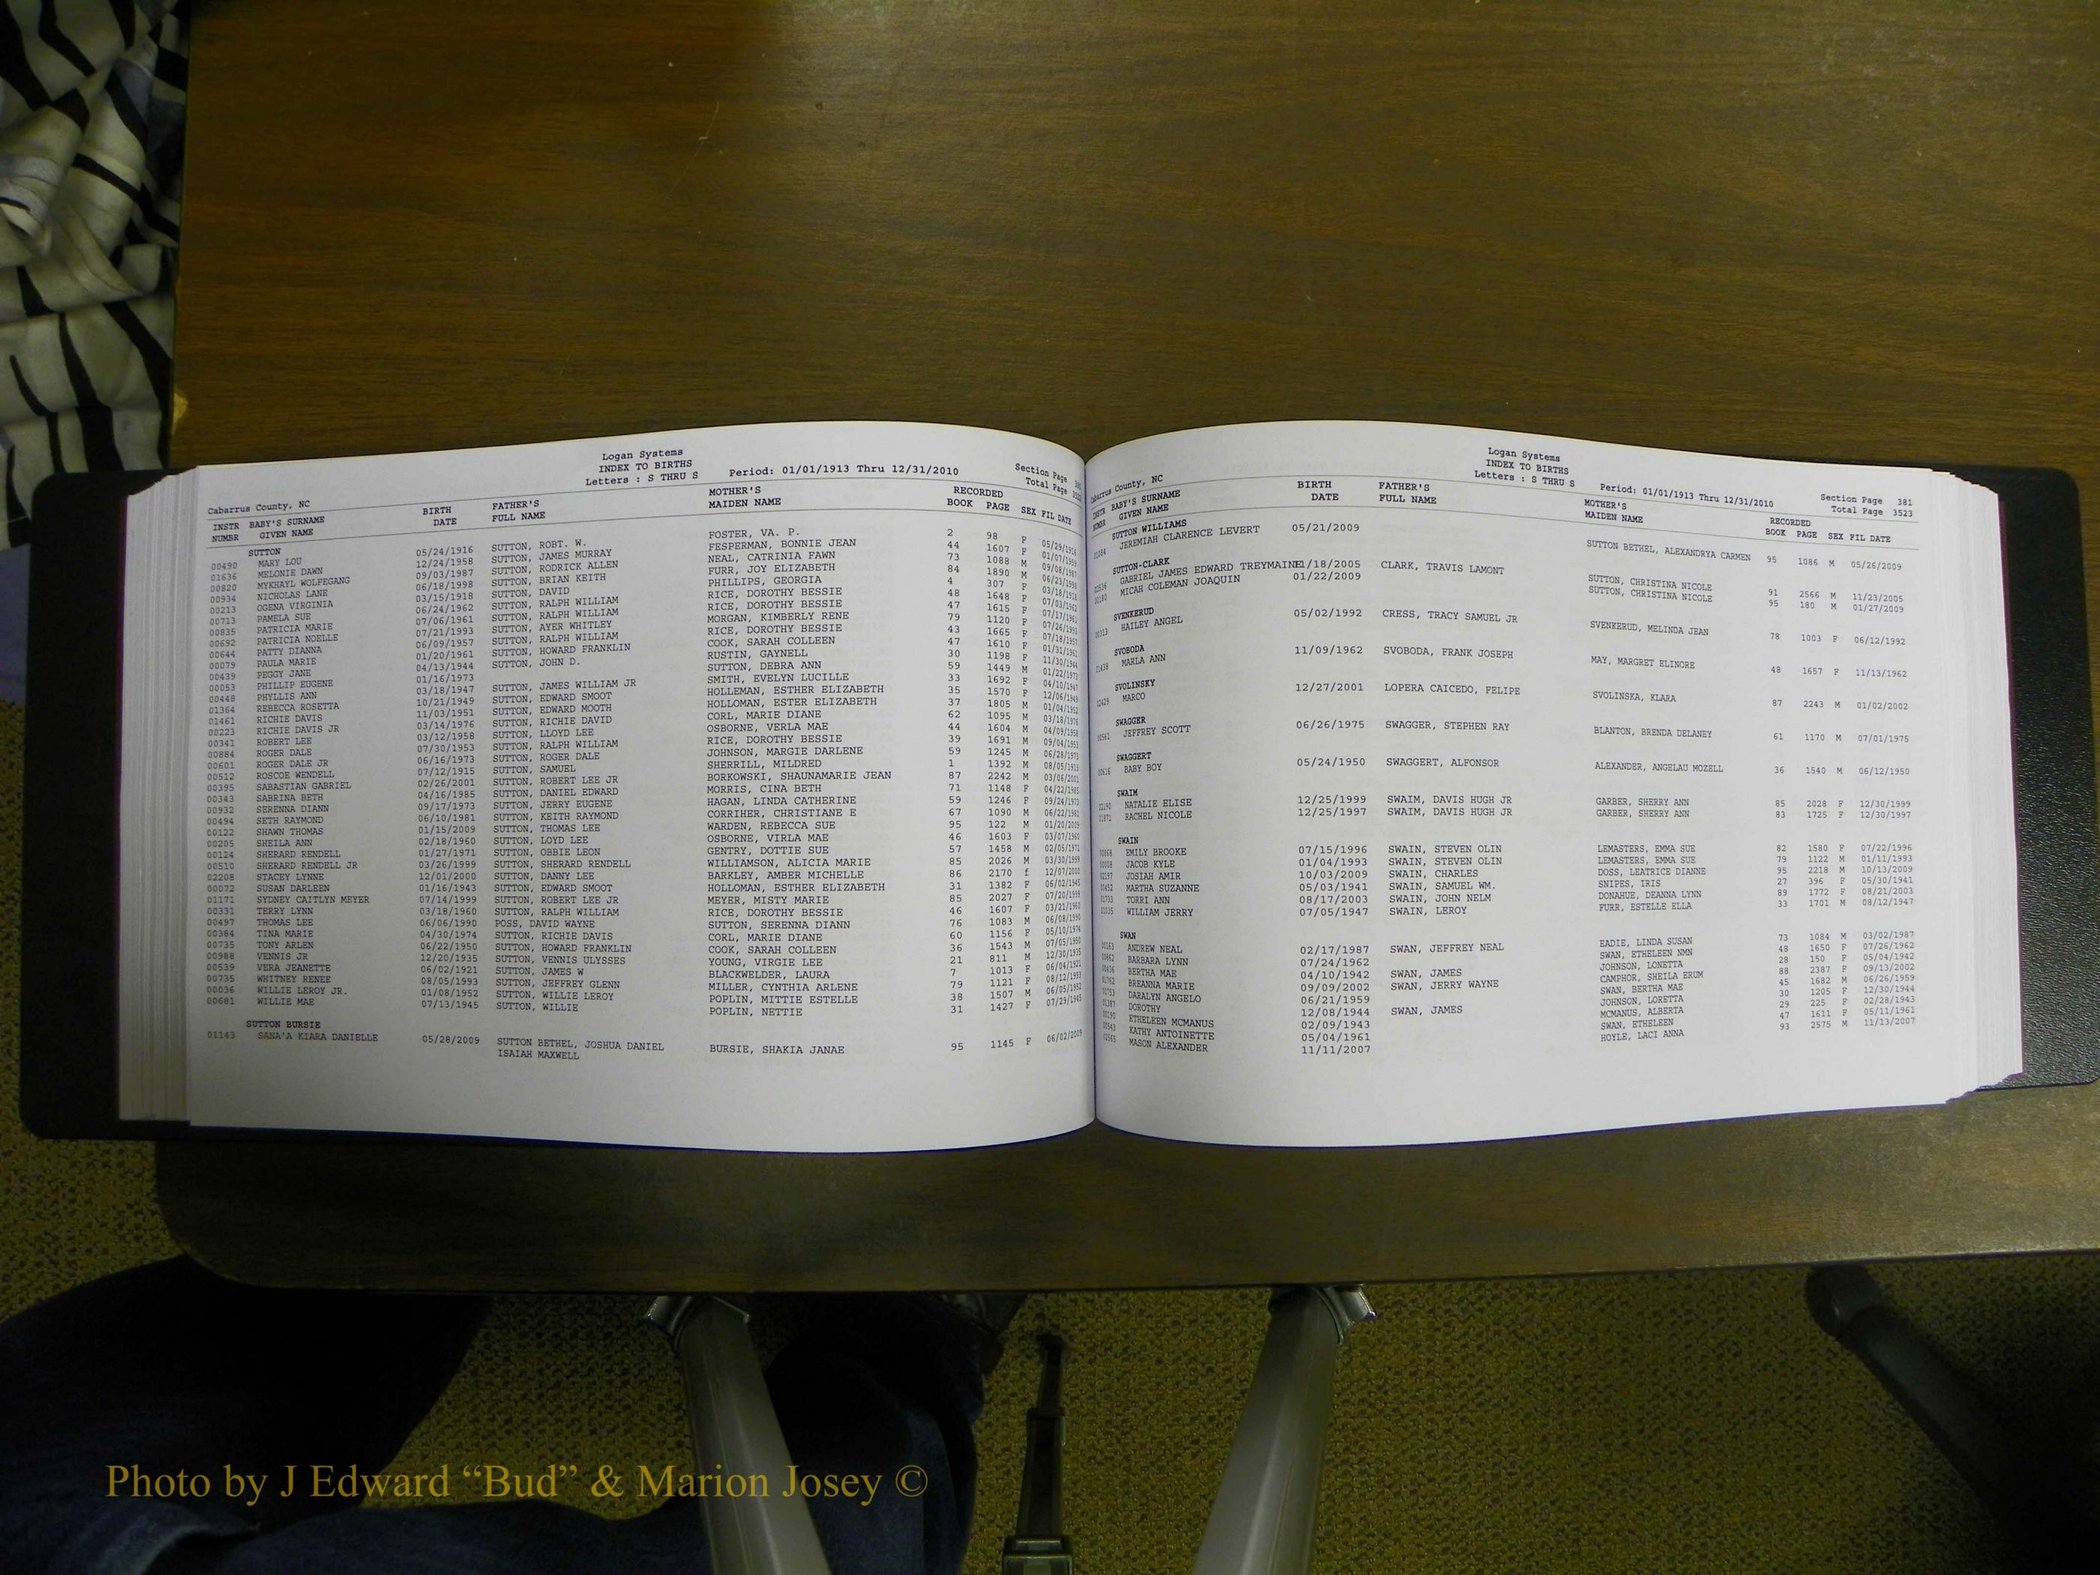 Logan Systems
INDEX TO BIRTHS
Letters : S THRU S Period: 01/01/1913 Thru 12/31/2010 Section Page
Total Page
Cabarrus County, NC
INSTR BABY'S SURNAME BIRTH FATHER'S MOTHER'S RECORDED
NUMBR GIVEN NAME DATE FULL NAME MAIDEN NAME BOOK PAGE SEX FIL DATE
SUTTON
00490 MARY LOU 05/24/1916 SUTTON, ROBT. W. FOSTER, VA. P. 2 98 F 05/29/1916
01636 MELONIE DAWN 12/24/1958 SUTTON, JAMES MURRAY FESPERMAN, BONNIE JEAN 44 1607 F 01/07/1959
00820 MYKHAYL WOLFEGANG 09/03/1987 SUTTON, RODRICK ALLEN NEAL, CATRINIA FAWN 73 1088 M 09/08/1987
00934 NICHOLAS LANE 06/18/1998 SUTTON, BRIAN KEITH FURR, JOY ELIZABETH 84 1890 M 06/23/1998
00213 OGENA VIRGINIA 03/15/1918 SUTTON, DAVID PHILLIPS, GEORGIA 4 307 F 03/18/1918
00713 PAMELA SUE 06/24/1962 SUTTON, RALPH WILLIAM RICE, DOROTHY BESSIE 48 1648 F 07/03/1962
00835 PATRICIA MARIE 07/06/1961 SUTTON, RALPH WILLIAM RICE, DOROTHY BESSIE 47 1615 F 07/17/1961
00692 PATRICIA NOELLE 07/21/1993 SUTTON, AYER WHITLEY MORGAN, KIMBERLY RENE 79 1120 F 07/26/1993
00644 PATTY DIANNA 06/09/1957 SUTTON, RALPH WILLIAM RICE, DOROTHY BESSIE 43 1665 F 07/18/1957
00079 PAULA MARIE 01/20/1961 SUTTON, HOWARD FRANKLIN COOK, SARAH COLLEEN 47 1610 F 01/31/1961
00439 PEGGY JANE 04/13/1944 SUTTON, JOHN D. RUSTIN, GAYNELL 30 1198 F 11/30/1944
00053 PHILLIP EUGENE 01/16/1973 SUTTON, DEBRA ANN 59 1449 M 01/22/1973
00448 PHYLLIS ANN 03/18/1947 SUTTON, JAMES WILLIAM JR SMITH, EVELYN LUCILLE 33 1692 F 04/10/1947
01364 REBECCA ROSETTA 10/21/1949 SUTTON, EDWARD SMOOT HOLLEMAN, ESTHER ELIZABETH 35 1570 F 12/06/1949
01461 RICHIE DAVIS 11/03/1951 SUTTON, EDWARD MOOTH HOLLOMAN, ESTER ELIZABETH 37 1805 M 01/04/1952
00223 RICHIE DAVIS JR 03/14/1976 SUTTON, RICHIE DAVID CORL, MARIE DIANE 62 1095 M 03/18/1976
00341 ROBERT LEE 03/12/1958 SUTTON, LLOYD LEE OSBORNE, VERLA MAE 44 1604 M 04/09/1958
00884 ROGER DALE 07/30/1953 SUTTON, RALPH WILLIAM RICE, DOROTHY BESSIE 39 1691 M 09/04/1953
00601 ROGER DALE JR 06/16/1973 SUTTON, ROGER DALE JOHNSON, MARGIE DARLENE 59 1245 M 06/28/1973
00512 ROSCOE WENDELL 07/12/1915 SUTTON, SAMUEL SHERRILL, MILDRED 1 1392 M 08/05/1915
00395 SABASTIAN GABRIEL 02/26/2001 SUTTON, ROBERT LEE JR BORKOWSKI, SHAUNAMARIE JEAN 87 2242 M 03/06/2001
00343 SABRINA BETH 04/16/1985 SUTTON, DANIEL EDWARD MORRIS, CINA BETH 71 1148 F 04/22/1985
00932 SERENNA DIANN 09/17/1973 SUTTON, JERRY EUGENE HAGAN, LINDA CATHERINE 59 1246 F 09/24/1973
00494 SETH RAYMOND 06/10/1981 SUTTON, KEITH RAYMOND CORRIHER, CHRISTIANE E 67 1090 M 06/22/1981
00122 SHAWN THOMAS 01/15/2009 SUTTON, THOMAS LEE WARDEN, REBECCA SUE 95 122 M 01/20/2009
00205 SHEILA ANN 02/18/1960 SUTTON, LOYD LEE OSBORNE, VIRLA MAE 46 1603 F 03/07/1960
00124 SHERARD RENDELL 01/27/1971 SUTTON, OBBIE LEON GENTRY, DOTTIE SUE 57 1458 M 02/05/1971
00510 SHERARD RENDELL JR 03/26/1999 SUTTON, SHERARD RENDELL WILLIAMSON, ALICIA MARIE 85 2026 M 03/30/1999
02208 STACEY LYNNE 12/01/2000 SUTTON, DANNY LEE BARKLEY, AMBER MICHELLE 86 2170 f 12/07/2000
00072 SUSAN DARLEEN 01/16/1943 SUTTON, EDWARD SMOOT HOLLOMAN, ESTHER ELIZABETH 31 1382 F 06/02/1945
01171 SYDNEY CAITLYN MEYER 07/14/1999 SUTTON, ROBERT LEE JR MEYER, MISTY MARIE 85 2027 F 07/20/1999
00331 TERRY LYNN 03/18/1960 SUTTON, RALPH WILLIAM RICE, DOROTHY BESSIE 46 1607 F 03/21/1960
00497 THOMAS LEE 06/06/1990 POSS, DAVID WAYNE SUTTON, SERENNA DIANN 76 1083 M 06/08/1990
00384 TINA MARIE 04/30/1974 SUTTON, RICHIE DAVIS CORL, MARIE DIANE 60 1156 F 05/10/1974
00735 TONY ARLEN 06/22/1950 SUTTON, HOWARD FRANKLIN COOK, SARAH COLLEEN 36 1543 M 07/05/1950
00988 VENNIS JR 12/20/1935 SUTTON, VENNIS ULYSSES YOUNG, VIRGIE LEE 21 811 M 12/30/1935
00539 VERA JEANETTE 06/02/1921 SUTTON, JAMES W BLACKWELDER, LAURA 7 1013 F 06/04/1921
00735 WHITNEY RENEE 08/05/1993 SUTTON, JEFFREY GLENN MILLER, CYNTHIA ARLENE 79 1121 F 08/12/1993
00036 WILLIE LEROY JR. 01/08/1952 SUTTON, WILLIE LEROY POPLIN, MITTIE ESTELLE 38 1507 M 06/05/1952
00681 WILLIE MAE 07/13/1945 SUTTON, WILLIE POPLIN, NETTIE 31 1427 F 07/29/1945
SUTTON BURSIE
01143 SANA'A KIARA DANIELLE 05/28/2009 SUTTON BETHEL, JOSHUA DANIEL BURSIE, SHAKIA JANAE 95 1145 F 06/02/2009
ISAIAH MAXWELL
Logan Systems
INDEX TO BIRTHS
Letters : S THRU S Period: 01/01/1913 Thru 12/31/2010 Section Page 381
Total Page 3523
Cabarrus County, NC
INSTR BABY'S SURNAME BIRTH FATHER'S MOTHER'S RECORDED
NUMBR GIVEN NAME DATE FULL NAME MAIDEN NAME BOOK PAGE SEX FIL DATE
SUTTON WILLIAMS
JEREMIAH CLARENCE LEVERT 05/21/2009 SUTTON BETHEL, ALEXANDRYA CARMEN 95 1086 M 05/26/2009
SUTTON-CLARK
GABRIEL JAMES EDWARD TREYMAINE 11/18/2005 CLARK, TRAVIS LAMONT SUTTON, CHRISTINA NICOLE 91 2566 M 11/23/2005
00180 MICAH COLEMAN JOAQUIN 01/22/2009 SUTTON, CHRISTINA NICOLE 95 180 M 01/27/2009
SVENKERUD
00313 HAILEY ANGEL 05/02/1992 CRESS, TRACY SAMUEL JR SVENKERUD, MELINDA JEAN 78 1003 F 06/12/1992
SVOBODA
01438 MARLA ANN 11/09/1962 SVOBODA, FRANK JOSEPH MAY, MARGRET ELINORE 48 1657 F 11/13/1962
SVOLINSKY
02429 MARCO 12/27/2001 LOPERA CAICEDO, FELIPE SVOLINSKA, KLARA 87 2243 M 01/02/2002
SWAGGER
00561 JEFFREY SCOTT 06/26/1975 SWAGGER, STEPHEN RAY BLANTON, BRENDA DELANEY 61 1170 M 07/01/1975
SWAGGERT
00616 BABY BOY 05/24/1950 SWAGGERT, ALFONSOR ALEXANDER, ANGELAU MOZELL 36 1540 M 06/12/1950
SWAIM
02190 NATALIE ELISE 12/25/1999 SWAIM, DAVIS HUGH JR GARBER, SHERRY ANN 85 2028 F 12/30/1999
01871 RACHEL NICOLE 12/25/1997 SWAIM, DAVIS HUGH JR GARBER, SHERRY ANN 83 1725 F 12/30/1997
SWAIN
00868 EMILY BROOKE 07/15/1996 SWAIN, STEVEN OLIN LEMASTERS, EMMA SUE 82 1580 F 07/22/1996
00008 JACOB KYLE 01/04/1993 SWAIN, STEVEN OLIN LEMASTERS, EMMA SUE 79 1122 M 01/11/1993
02197 JOSIAH AMIR 10/03/2009 SWAIN, CHARLES DOSS, LEATRICE DIANNE 95 2218 M 10/13/2009
00452 MARTHA SUZANNE 05/03/1941 SWAIN, SAMUEL WM. SNIPES, IRIS 27 396 F 05/30/1941
01733 TORRI ANN 08/17/2003 SWAIN, JOHN NELM DONAHUE, DEANNA LYNN 89 1772 F 08/21/2003
01035 WILLIAM JERRY 07/05/1947 SWAIN, LEROY FURR, ESTELLE ELLA 33 1701 M 08/12/1947
SWAN
00163 ANDREW NEAL 02/17/1987 SWAN, JEFFREY NEAL EADIE, LINDA SUSAN 73 1084 M 03/02/1987
00862 BARBARA LYNN 07/24/1962 SWAN, ETHELEEN NMN 48 1650 F 07/26/1962
00436 BERTHA MAE 04/10/1942 SWAN, JAMES JOHNSON, LONETTA 28 150 F 05/04/1942
01762 BREANNA MARIE 09/09/2002 SWAN, JERRY WAYNE CAMPHOR, SHEILA ERUM 88 2387 F 09/13/2002
00753 DARALYN ANGELO 06/21/1959 SWAN, BERTHA MAE 45 1682 M 06/26/1959
01387 DOROTHY 12/08/1944 SWAN, JAMES JOHNSON, LORETTA 30 1205 F 12/30/1944
00190 ETHELEEN MCMANUS 02/09/1943 MCMANUS, ALBERTA 29 225 F 02/28/1943
00543 KATHY ANTOINETTE 05/04/1961 SWAN, ETHELEEN 47 1611 F 05/11/1961
02565 MASON ALEXANDER 11/11/2007 HOYLE, LACI ANNA 93 2575 M 11/13/2007
Photo by J Edward “Bud” & Marion Josey ©